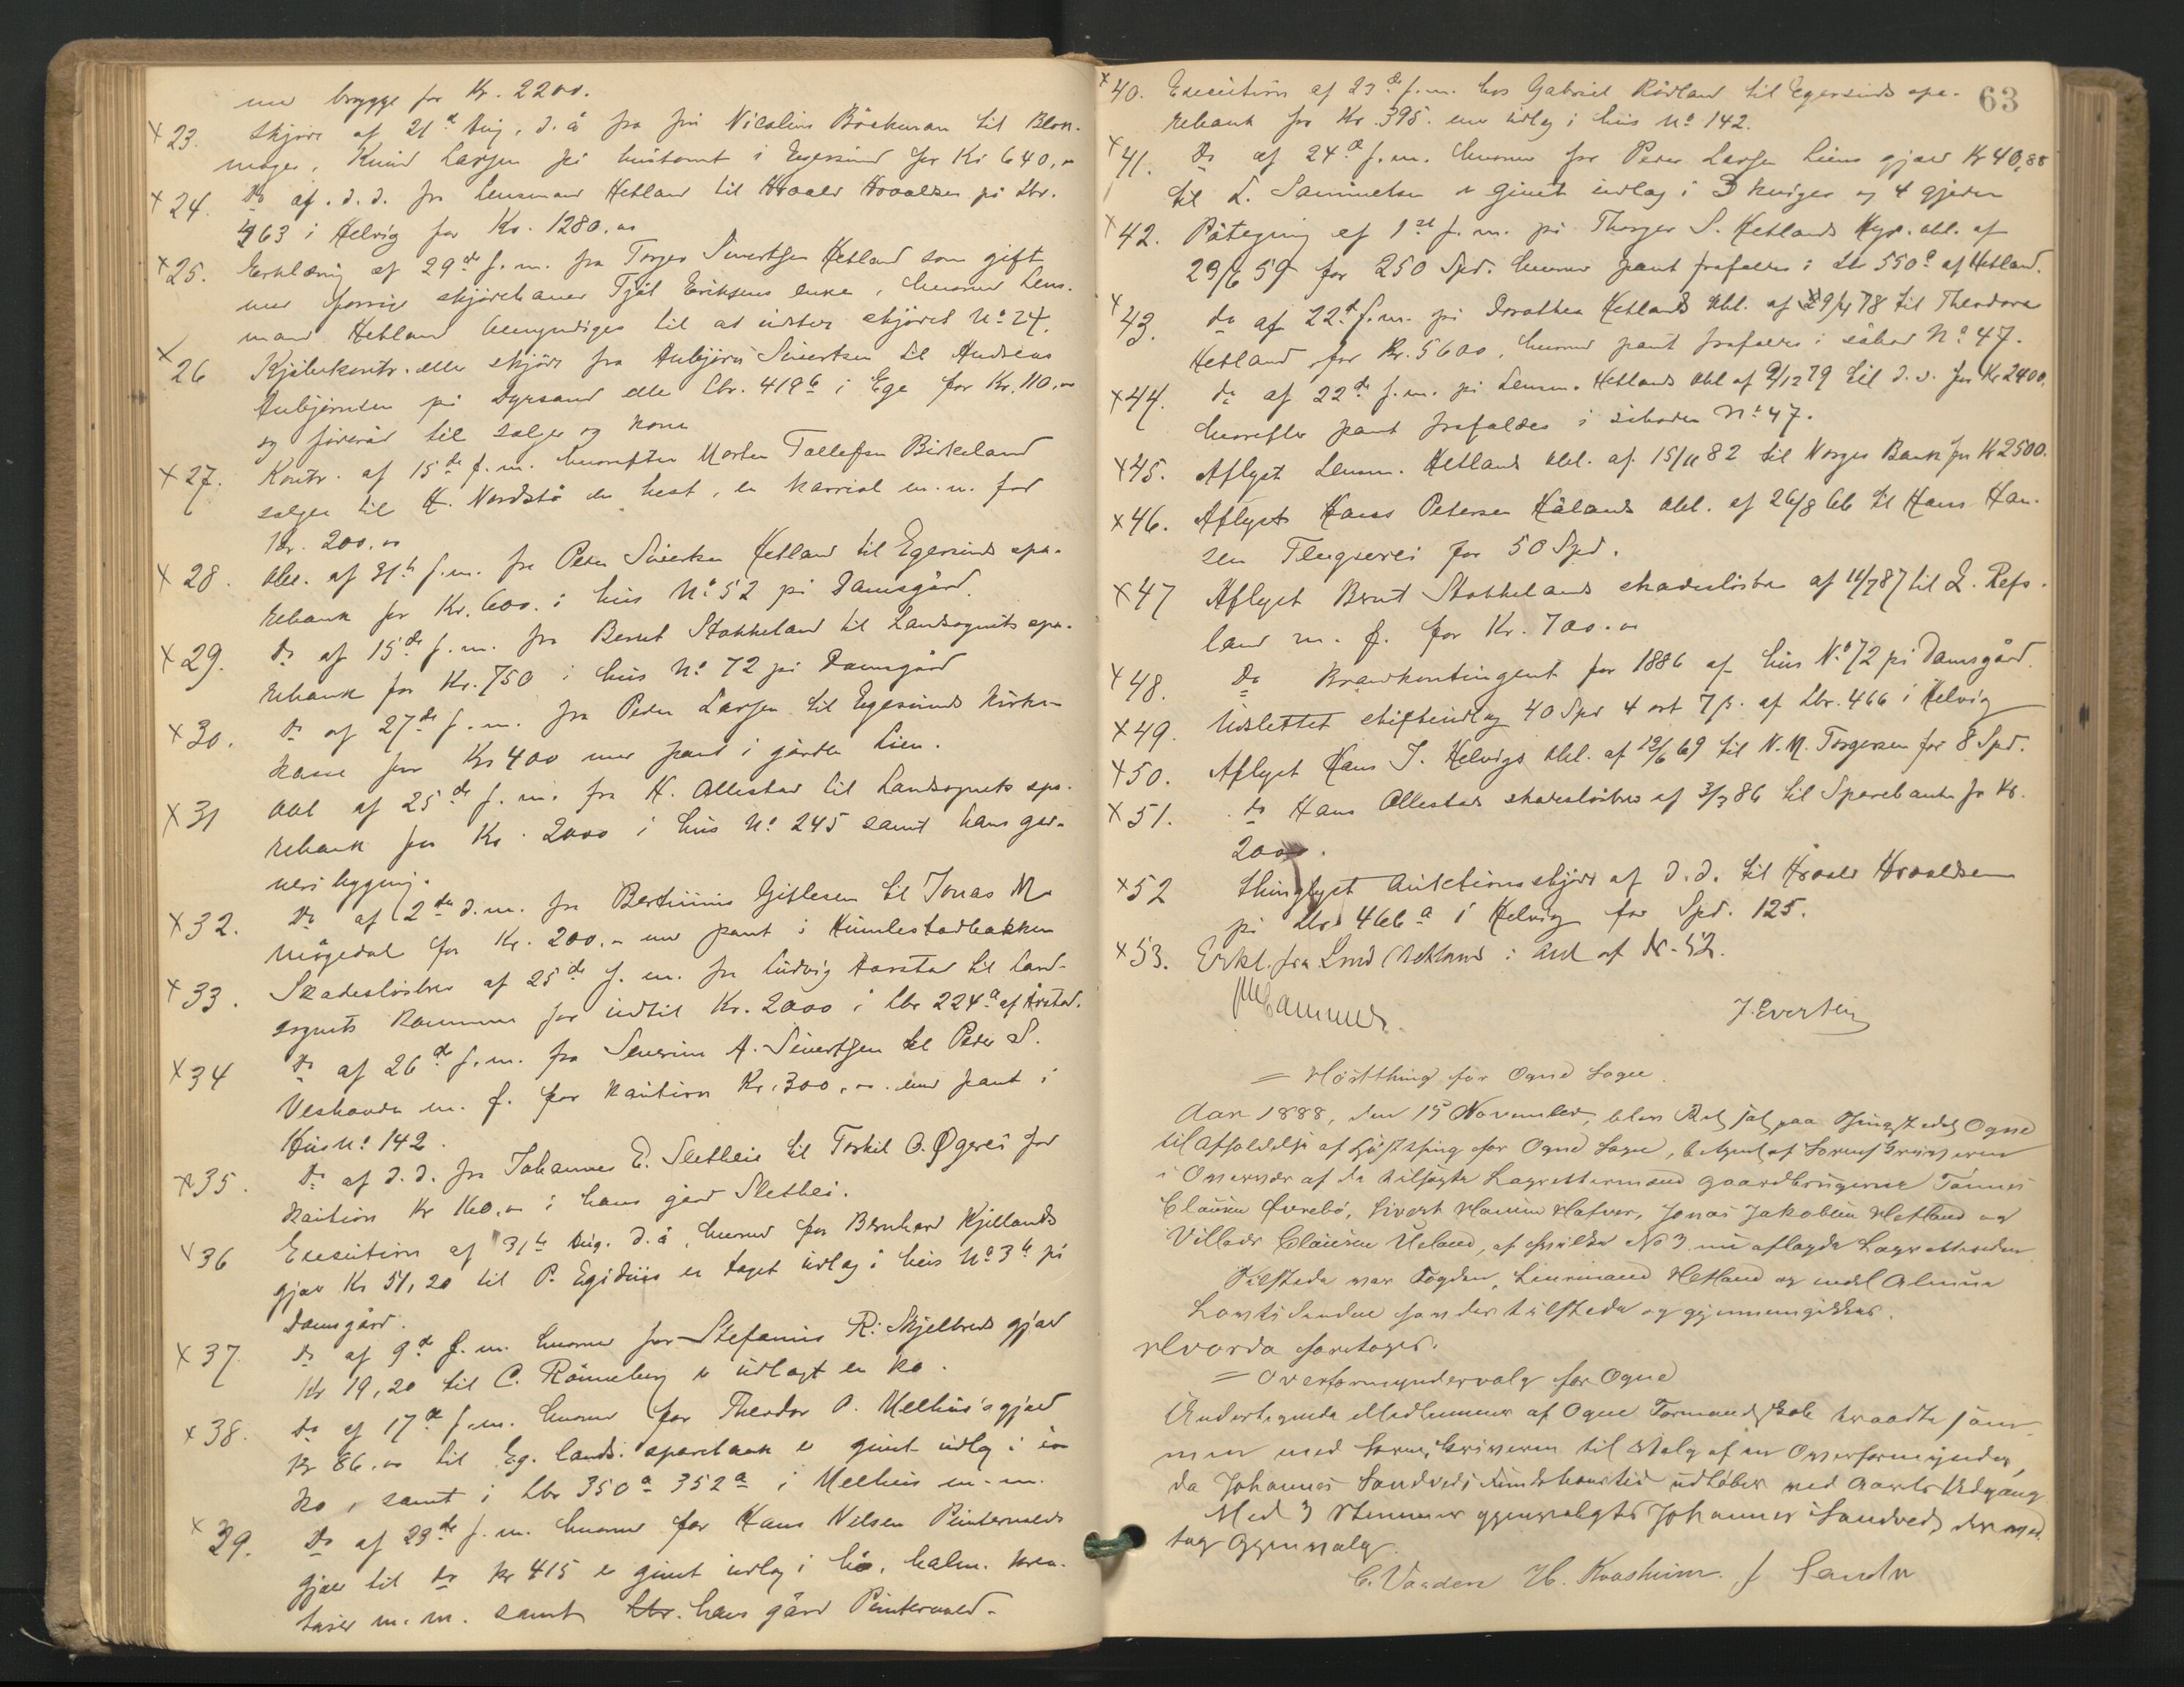 med brygge for Kr. 2200.
x 23. Skjöde af 21de Aug. d. å fra frü Nicoline Böckman til Blok-
mager Knüd Larsen på hustomt i Egersund for Kr 640,00
x 24. Do af d. d. fra Lensmand Hetland til Hroald Hroaldsen på Lbr.
463 i Helvig for Kr. 1280.00
x 25. Erklæring af 29de f. m. fra Torger Sivertsen Hetland som gift
med forrige skjödehaver Tjöl Eriksens enke, hvorved Lens-
mand Hetland bemyndiges til at udstede skjödet No 24.
x 26 Kjöbekontr. eller skjöde fra Aubjörn Sivertsen til Andreas
Aubjörnsen på Dyrsand eller Lbr. 419b i Ege for Kr. 110.00
og föderåd til sælger og kone
x 27. Kontr. af 15de f. m. hvorefter Morten Tollefsen Birkeland
sælger til H. Nordstö en hest, en karriol m. m. for
Kr. 200.00
x 28. Obl. af 31te f. m. fra Peder Sivertsen Hetland til Egersunds spa-
rebank for Kr. 600. i hus No 52 på Damsgård.
x 29. Do af 15de f. m. fra Bernt Stokkeland til Landsognets spa-
rebank for Kr. 750 i hus No 72 på Damsgård
x 30. Do af 27de f. m. fra Peder Larsen til Egersunds Kirke-
kasse for Kr 400 med pant i gården Lien.
x 31 Obl af 25de f. m. fra H. Ollestad til Landsognets spa-
rebank for Kr. 2000 i hus No 245 samt hans gar-
veri bygning.
x 32. Do af 2den d. m. fra Bertinius Gitlesen til Jonas M.
Mögedal for Kr. 200.- med pant i Humlestadbakken
x 33. Skadeslösbrev af 25de f. m. fra Ludvig Aarstad til Land-
sognets Kommune for indtil Kr. 2000 i Lbr 224a af Årstad.
x 34 Do af 26de f. m. fra Severin A. Sivertsen til Peder S.
Veshovde m. fl. for kaution Kr. 300.00 med pant i
Hus No 142.
x 35. Do af d. d. fra Johannes E. Sletheie til Torkil O. Øgrei for
kaution Kr 160.00 i hans gård Slethei.
x 36 Execution af 31te Aug. d. å, hvorved for Bernhard Kjellands
gjæld Kr 51,20 til P. Egidius er taget udlæg i hus No 3b på
Damsgård.
x 37. Do af 9de f. m. hvorved for Stefanus R. Skjelbreds gjæld
Kr 19,20 til C. Rönneberg er udlagt en ko.
x 38. Do af 17de f. m. hvorved for Theodor O. Melhus's gjæld
Kr 86.00 til Eg. lands. sparebank er givet udlæg i en
ko, samt i Lbr 350a 352a i Melhus m. m.
x 39. Do af 23de f. m. hvorved for Hans Nilsen Pintervolds
gjæld til do Kr 415 er givet udlæg i hö, halm, krea-
turer m. m. samt Lbr. hans gård Pintervold.
63
x 40. Execution af 23de f. m. hos Gabriel Rödland til Egersunds spa-
rebank for Kr. 395. med udlæg i hus No 142.
x 41. Do af 24de f. m. hvorved for Peder Larsen Liens gjæld Kr 40,88
til L. Samuelsen er givet udlæg i 3 kviger og 4 gjeder
x 42. Påtegning af 1ste f. m. på Thorger S. Hetlands Hyp. obl. af
29/6 59 for 250 Spd. hvorved pant frafaldes i Lbr 550a af Hetland.
x 43. do af 22de f. m. på Dorothea Hetlands Obl. af 29/4 78 til Theodora
Hetland for Kr. 5600, hvorved pant frafaldes i söbod No 47.
x 44. do af 22de f. m. på Lensm. Hetlands Obl af 9/12 79 til d. s. for Kr 2400.
hvorefter pant frafaldes i söboden No 47.
x 45. Aflyst Lensm. Hetlands Obl. af 15/11 82 til Norges Bank for Kr 2500.
x 46. Aflyst Hans Petersen Hålands Obl. af 26/8 66 til Hans Han-
sen Tengserei for 50 Spd.
x 47 Aflyst Bernt Stokkelands skadeslösbrev af 11/7 87 til L. Refs-
land m. fl. for Kr. 700.00
x 48. Do Brandkontingent for 1886 af hus No 72 på Damsgård.
x 49. Udslettet stiftsudlæg 40 Spd 4 ort 7 β. af Lbr. 466 i Helvig
x 50. Aflyst Hans J. Helvigs Obl. af 12/6 69 til N. M. Torgersen for 8 Spd.
x 51. do Hans Ollestads skadeslösbrev af 3/3 86 til Sparebanken for Kr.
2000.
x 52 Thinglyst Auktionsskjöde af d. d. til Hroald Hroaldsen
på Lbr 466a i Helvig for Spd. 125.
x 53. Erkl. fra Lmd Hetland i Anl af Nr. 52.
J. Evertsen
= Høstthing for Ogne Sogn.
Aar 1888, den 15 November, blev Ret sat paa Thingstedet Ogne
til Afholdelse af Høstthing for Ogne Sogn, betjent af Sorenskriveren
i Overvær af de tilsagte Lagrettemænd Gaardbrugerne Tønnes
Clausen Øvrebø, Sivert Hansen Hatver, Jonas Jakobsen Hetland og
Villads Clausen Ueland, af hvilke No 3 nu aflagde Lagretteeden
Tilstede var Fogden, Lensmand Hetland og endel Almue
Lovtidende fandtes tilstede og gjennemgikkes.
Hvorda foretoges:
= Overformyndervalg for Ogne
Undertegnede Medlemmer af Ogne Formandskab traadte sam-
men med Sorenskriveren til Valg af en Overformynder,
da Johannes Sandveds Funktionstid udløber ved Aarets Udgang
Med 3 Stemmer gjenvalgtes Johannes Sandved, der mod-
tog Gjenvalg.
C. Vaaden H. Kvasheim. J Sandve